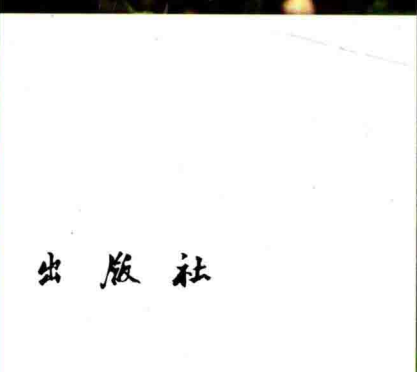 出版社